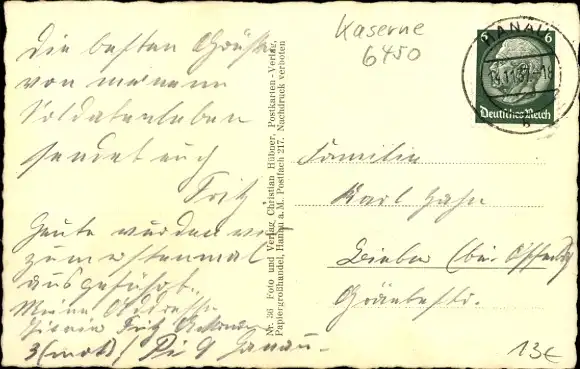 Die besten Grüße
von meinem
Soldatenleben
sendet euch
Fritz
Heute wurden wir
zum erstenmal
ausgeführt.
Meine Adresse
Pionier Fritz
3 (mot) / Pi 9 Hanau.
Nr. 36 Foto und Verlag Christian Hübner, Postkarten-Verlag,
Papiergroßhandel, Hanau a. M. Postfach 217. Nachdruck verboten
Kaserne
6450
HANAU
6 6
Deutsches Reich
Familie
Karl Hahn
Bieber (bei Offenbg
13€